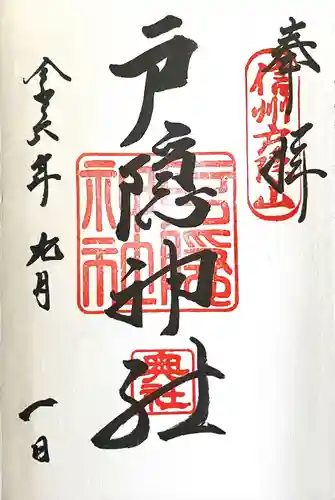 奉拝
信州戸隠山
戸隠神社
戸隠神社
奥社
令和六年 九月 一日